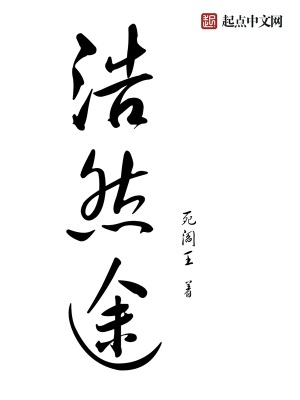 起点中文网
浩然途
死阎王 著